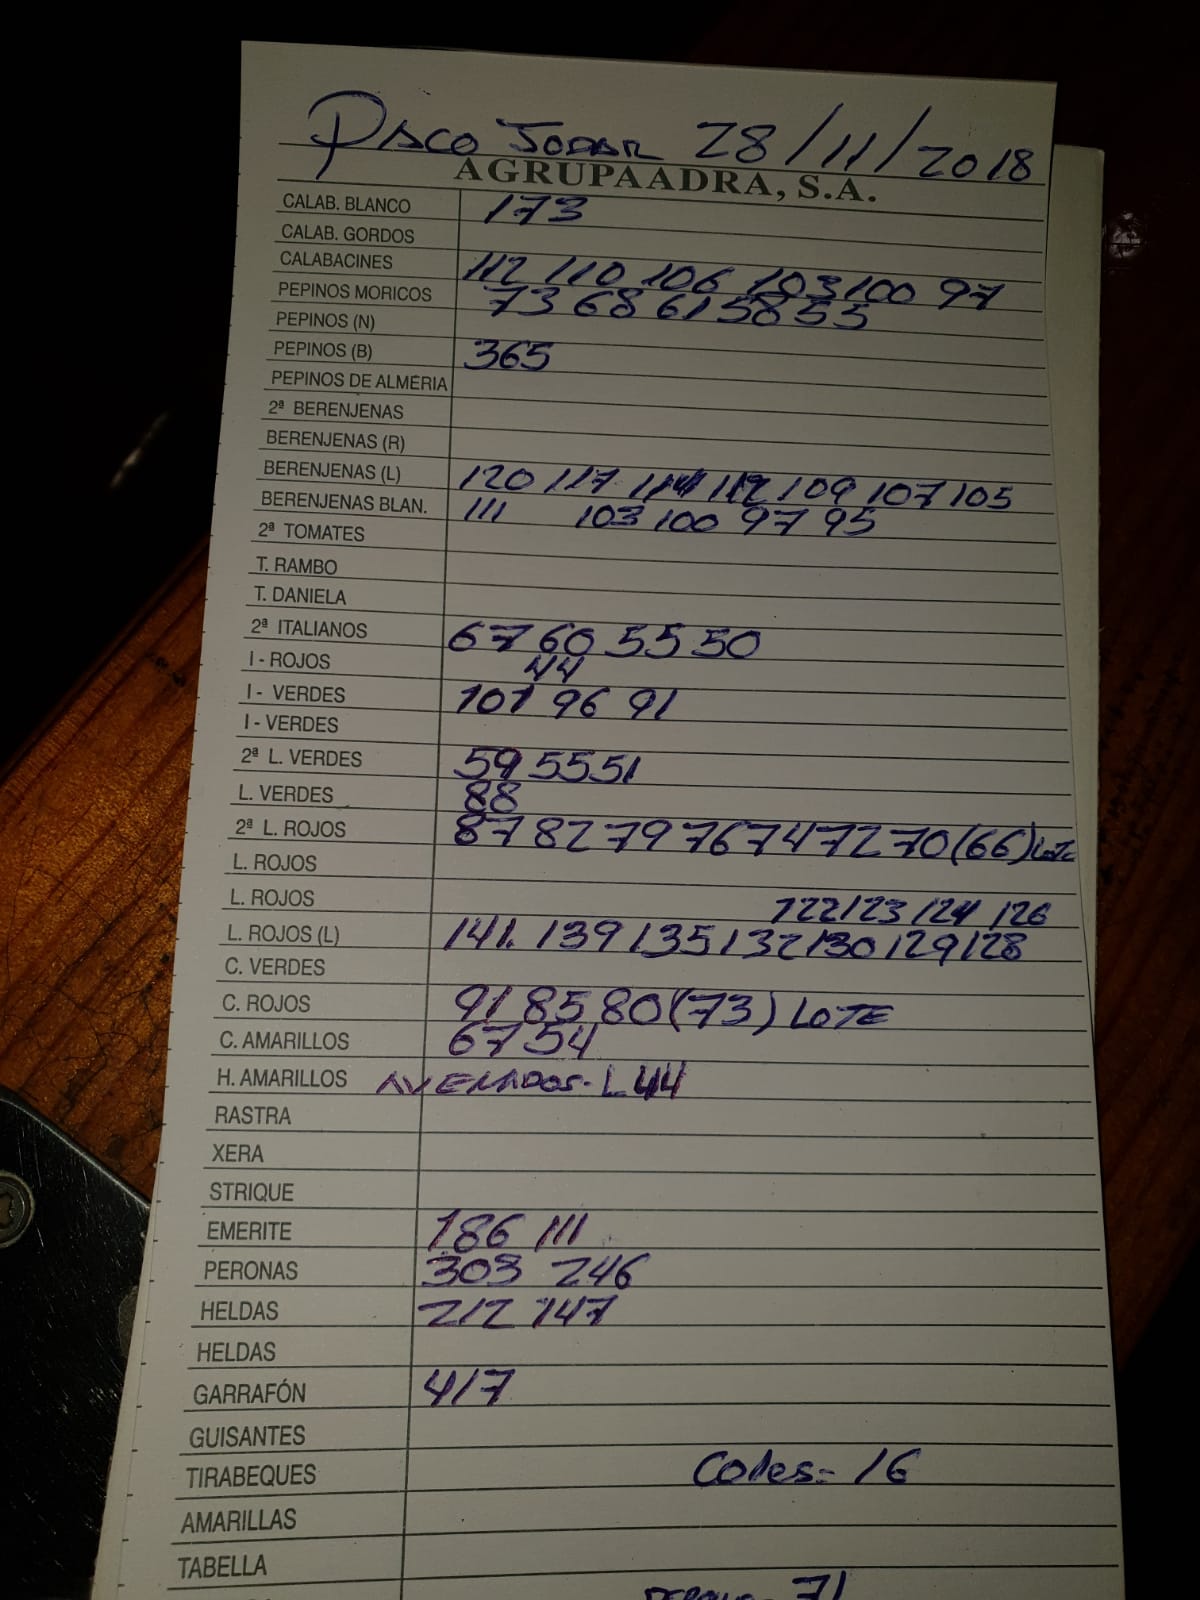 PACO JODAR 28/11/2018
AGRUPAADRA, S.A.
CALAB. BLANCO 173
CALAB. GORDOS
CALABACINES 112 110 106 103 100 97
PEPINOS MORICOS 73 68 61 58 55
PEPINOS (N)
PEPINOS (B) 365
PEPINOS DE ALMERIA
2ª BERENJENAS
BERENJENAS (R)
BERENJENAS (L) 120 117 114 112 109 107 105
BERENJENAS BLAN. 111 103 100 97 95
2ª TOMATES
T. RAMBO
T. DANIELA
2ª ITALIANOS 67 60 55 50
I - ROJOS 44
I - VERDES 101 96 91
I - VERDES
2ª L. VERDES 59 55 51
L. VERDES 88
2ª L. ROJOS 87 82 79 76 74 72 70 (66) LOTE
L. ROJOS
L. ROJOS 122 123 124 126
L. ROJOS (L) 141. 139 135 132 130 129 128
C. VERDES
C. ROJOS 91 85 80 (73) LOTE
C. AMARILLOS 67 54
H. AMARILLOS L 44
RASTRA
XERA
STRIQUE
EMERITE 186 111
PERONAS 303 246
HELDAS 212 147
HELDAS
GARRAFÓN 417
GUISANTES
TIRABEQUES Coles = 16
AMARILLAS
TABELLA
71